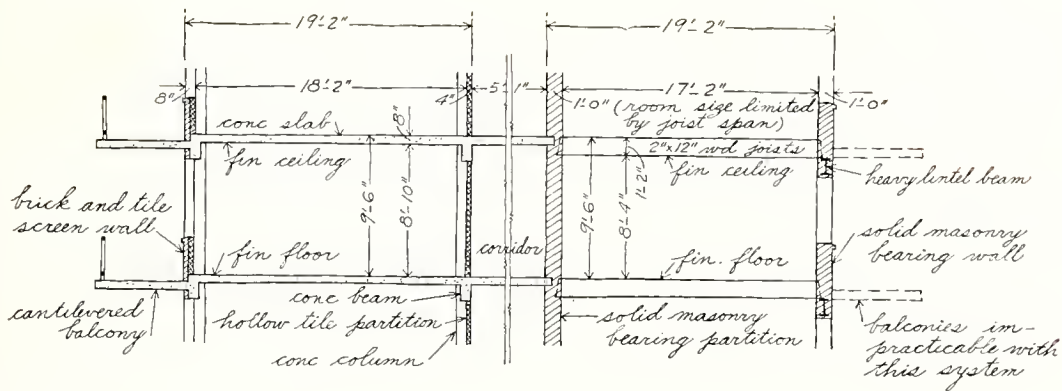 19'-2"
19'-2"
8"
18'-2"
4"
5'-1"
1'-0"
17'-2"
1'-0"
(room size limited
by joist span)
conc slab
8"
2"x12" wd joists
fin ceiling
fin ceiling
heavy lintel beam
brick and tile
screen wall
9'-6"
8'-10"
9'-6"
8'-4"
1'-2"
corridor
solid masonry
bearing wall
fin floor
fin. floor
cantilevered
balcony
conc beam
hollow tile partition
conc column
solid masonry
bearing partition
balconies im-
practicable with
this system